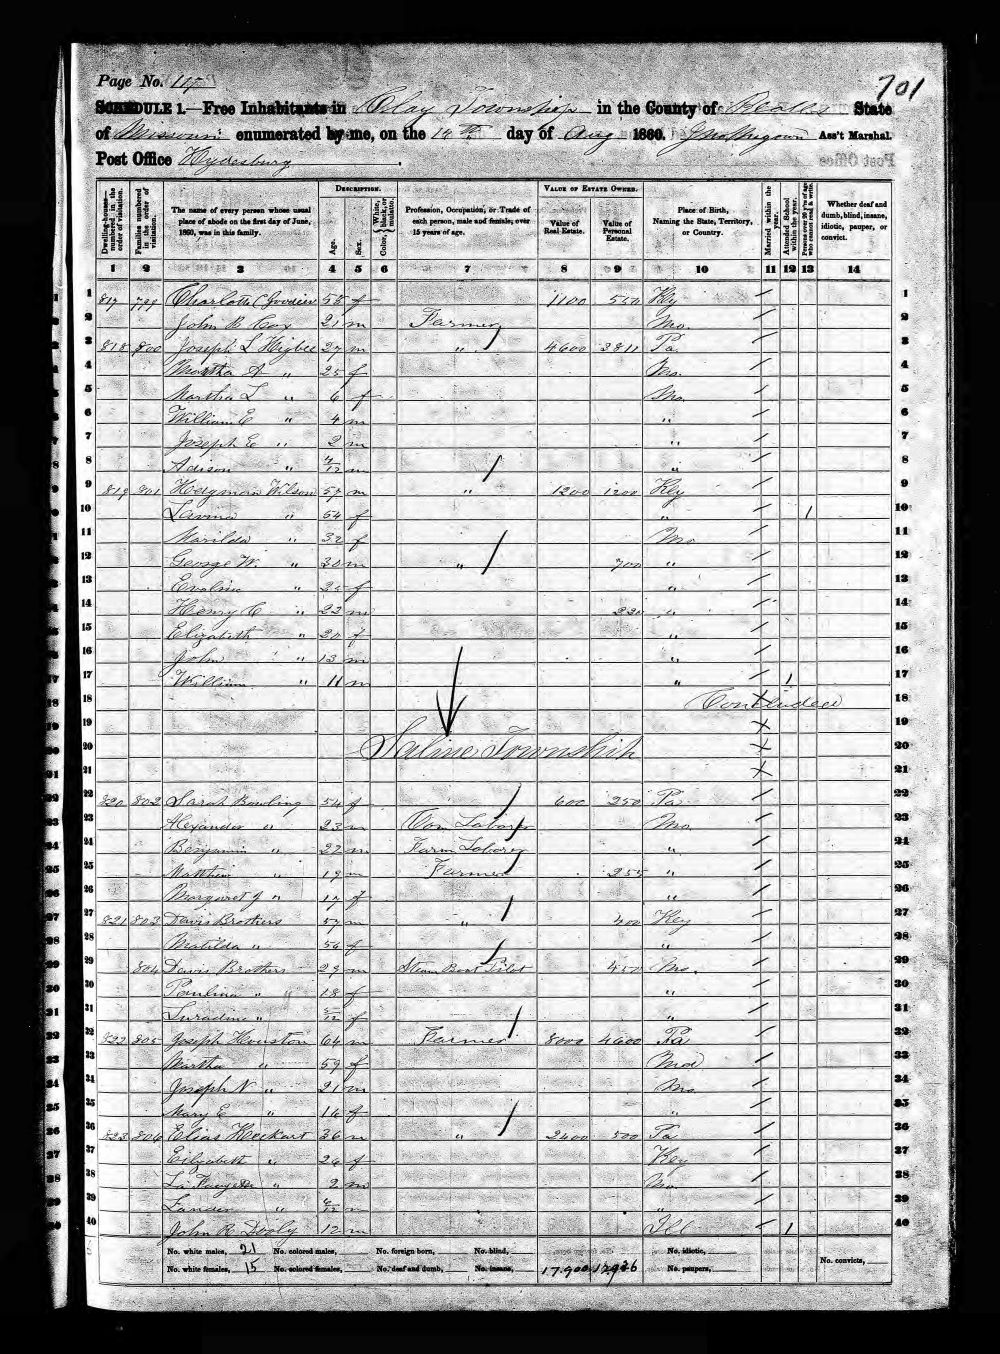 Page No. 115
701
SCHEDULE 1.—Free Inhabitants in Clay Township in the County of Ralls State
of Missouri enumerated by me, on the 14th day of Aug 1860. Ass't Marshal.
Post Office Hydesburg
Dwelling-houses—numbered in the order of visitation.
Families numbered in the order of visitation.
The name of every person whose usual place of abode on the first day of June, 1860, was in this family.
DESCRIPTION.
Age.
Sex.
Color, White, black, or mulatto.
Profession, Occupation, or Trade of each person, male and female, over 15 years of age.
VALUE OF ESTATE OWNED.
Value of Real Estate.
Value of Personal Estate.
Place of Birth, Naming the State, Territory, or Country.
Married within the year.
Attended School within the year.
Persons over 20 years of age who cannot read & write.
Whether deaf and dumb, blind, insane, idiotic, pauper, or convict.
1 2 3 4 5 6 7 8 9 10 11 12 13 14
1 817 799 Charlotte C 55 f 1100 550 Ky / 1
2 John B Cox 21 m Farmer Mo. / 2
3 818 800 Joseph L Higbee 27 m " 4600 3811 Pa. / 3
4 Martha A " 25 f Mo. / 4
5 Martha L " 6 f Mo. / 5
6 William E " 4 m " / 6
7 Joseph E " 2 m " / 7
8 Adison " 4/12 m " / 8
9 819 801 Hedgman Wilson 57 m " 1200 1200 Ky / 9
10 Lavina " 54 f " / 1 10
11 Marilda " 32 f Mo / 11
12 George W. " 30 m " 700 " / 12
13 Evaline " 25 f " / 13
14 Henry C " 22 m 220 " / 14
15 Elizabeth " 20 f " / 15
16 John " 13 m " / 16
17 William " 11 m " / 1 17
18 Concluded X 18
19 X 19
20 Saline Township X 20
21 X 21
22 820 802 Sarah Bowling 54 f 600 250 Pa / 22
23 Alexander " 23 m Com Laborer Mo. / 23
24 Benjamin " 22 m Farm Laborer " / 24
25 Matthew " 19 m Farmer 255 " / 25
26 Margaret J " 17 f " / 26
27 821 803 Davis Brothers 57 m " 400 Key / 27
28 Matilda " 56 f " / 28
29 804 Davis Brothers 29 m Steam Boat Pilot 450 Mo. / 29
30 Paulina " 18 f " / 30
31 Luradine " 5/12 f " / 31
32 822 805 Joseph Houston 64 m Farmer 8000 4600 Pa / 32
33 Martha " 59 f Md / 33
34 Joseph N " 21 m Mo. / 34
35 Mary E " 16 f " / 35
36 823 806 Elias Heckart 36 m " 2400 500 Pa / 36
37 Elizabeth " 26 f Key / 37
38 La Fayette " 2 m Mo. / 38
39 Lander " m " / 39
40 John R Dooly 12 m Ill / 1 40
No. white males, 21 No. colored males, No. foreign born, No. blind, No. idiotic,
No. white females, 15 No. colored females, No. deaf and dumb, No. insane, 17.900 12936 No. paupers, No. convicts,